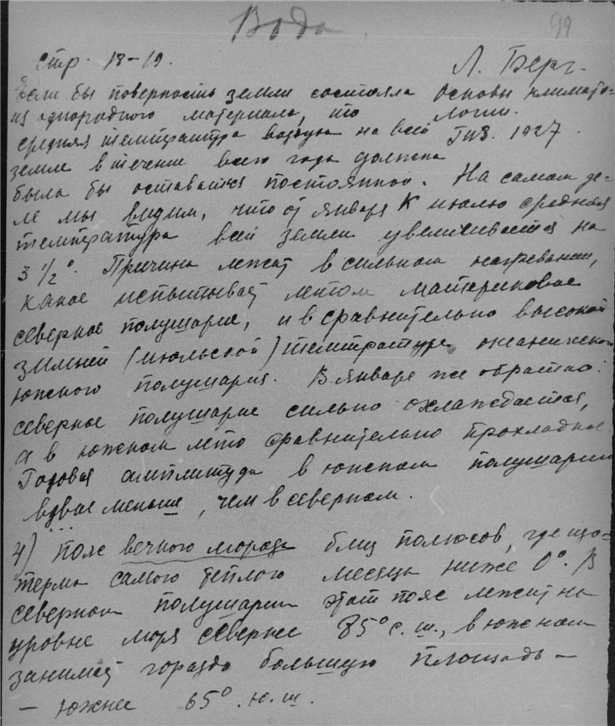 Вода
99
стр. 18-19.
Л. Берг.
Если бы поверхность земли состояла
Основы климато-
из однородного материала, то
логии.
средняя температура воздуха на всей
ГИЗ. 1927.
земле в течение всего года должна
была бы оставаться постоянной. На самом де-
ле мы видим, что от января к июлю средняя
температура всей земли увеличивается на
3 1/2°. Причина лежит в сильном нагревании,
какое испытывает летом материковое
северное полушарие, и в сравнительно высокой
зимней (июльской) температуре океанического
южного полушария. В январе же обратно:
северное полушарие сильно охлаждается,
а в южном лето сравнительно прохладное.
Годовая амплитуда в южном полушарии
вдвое меньше, чем в северном.
4) Пояс вечного мороза близ полюсов, где изо-
терма самого теплого месяца ниже 0°. В
северном полушарии этот пояс лежит на
уровне моря севернее 85° с. ш., в южном
занимает гораздо большую площадь –
– южнее 65° ю. ш.